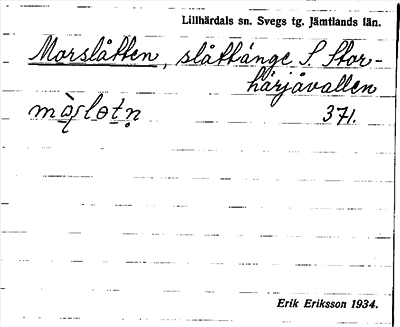 Lillhärdals sn. Svegs tg. Jämtlands län.
Morslåtten, slåttänge S. Stor-
härjåvallen
371.
Erik Eriksson 1934.